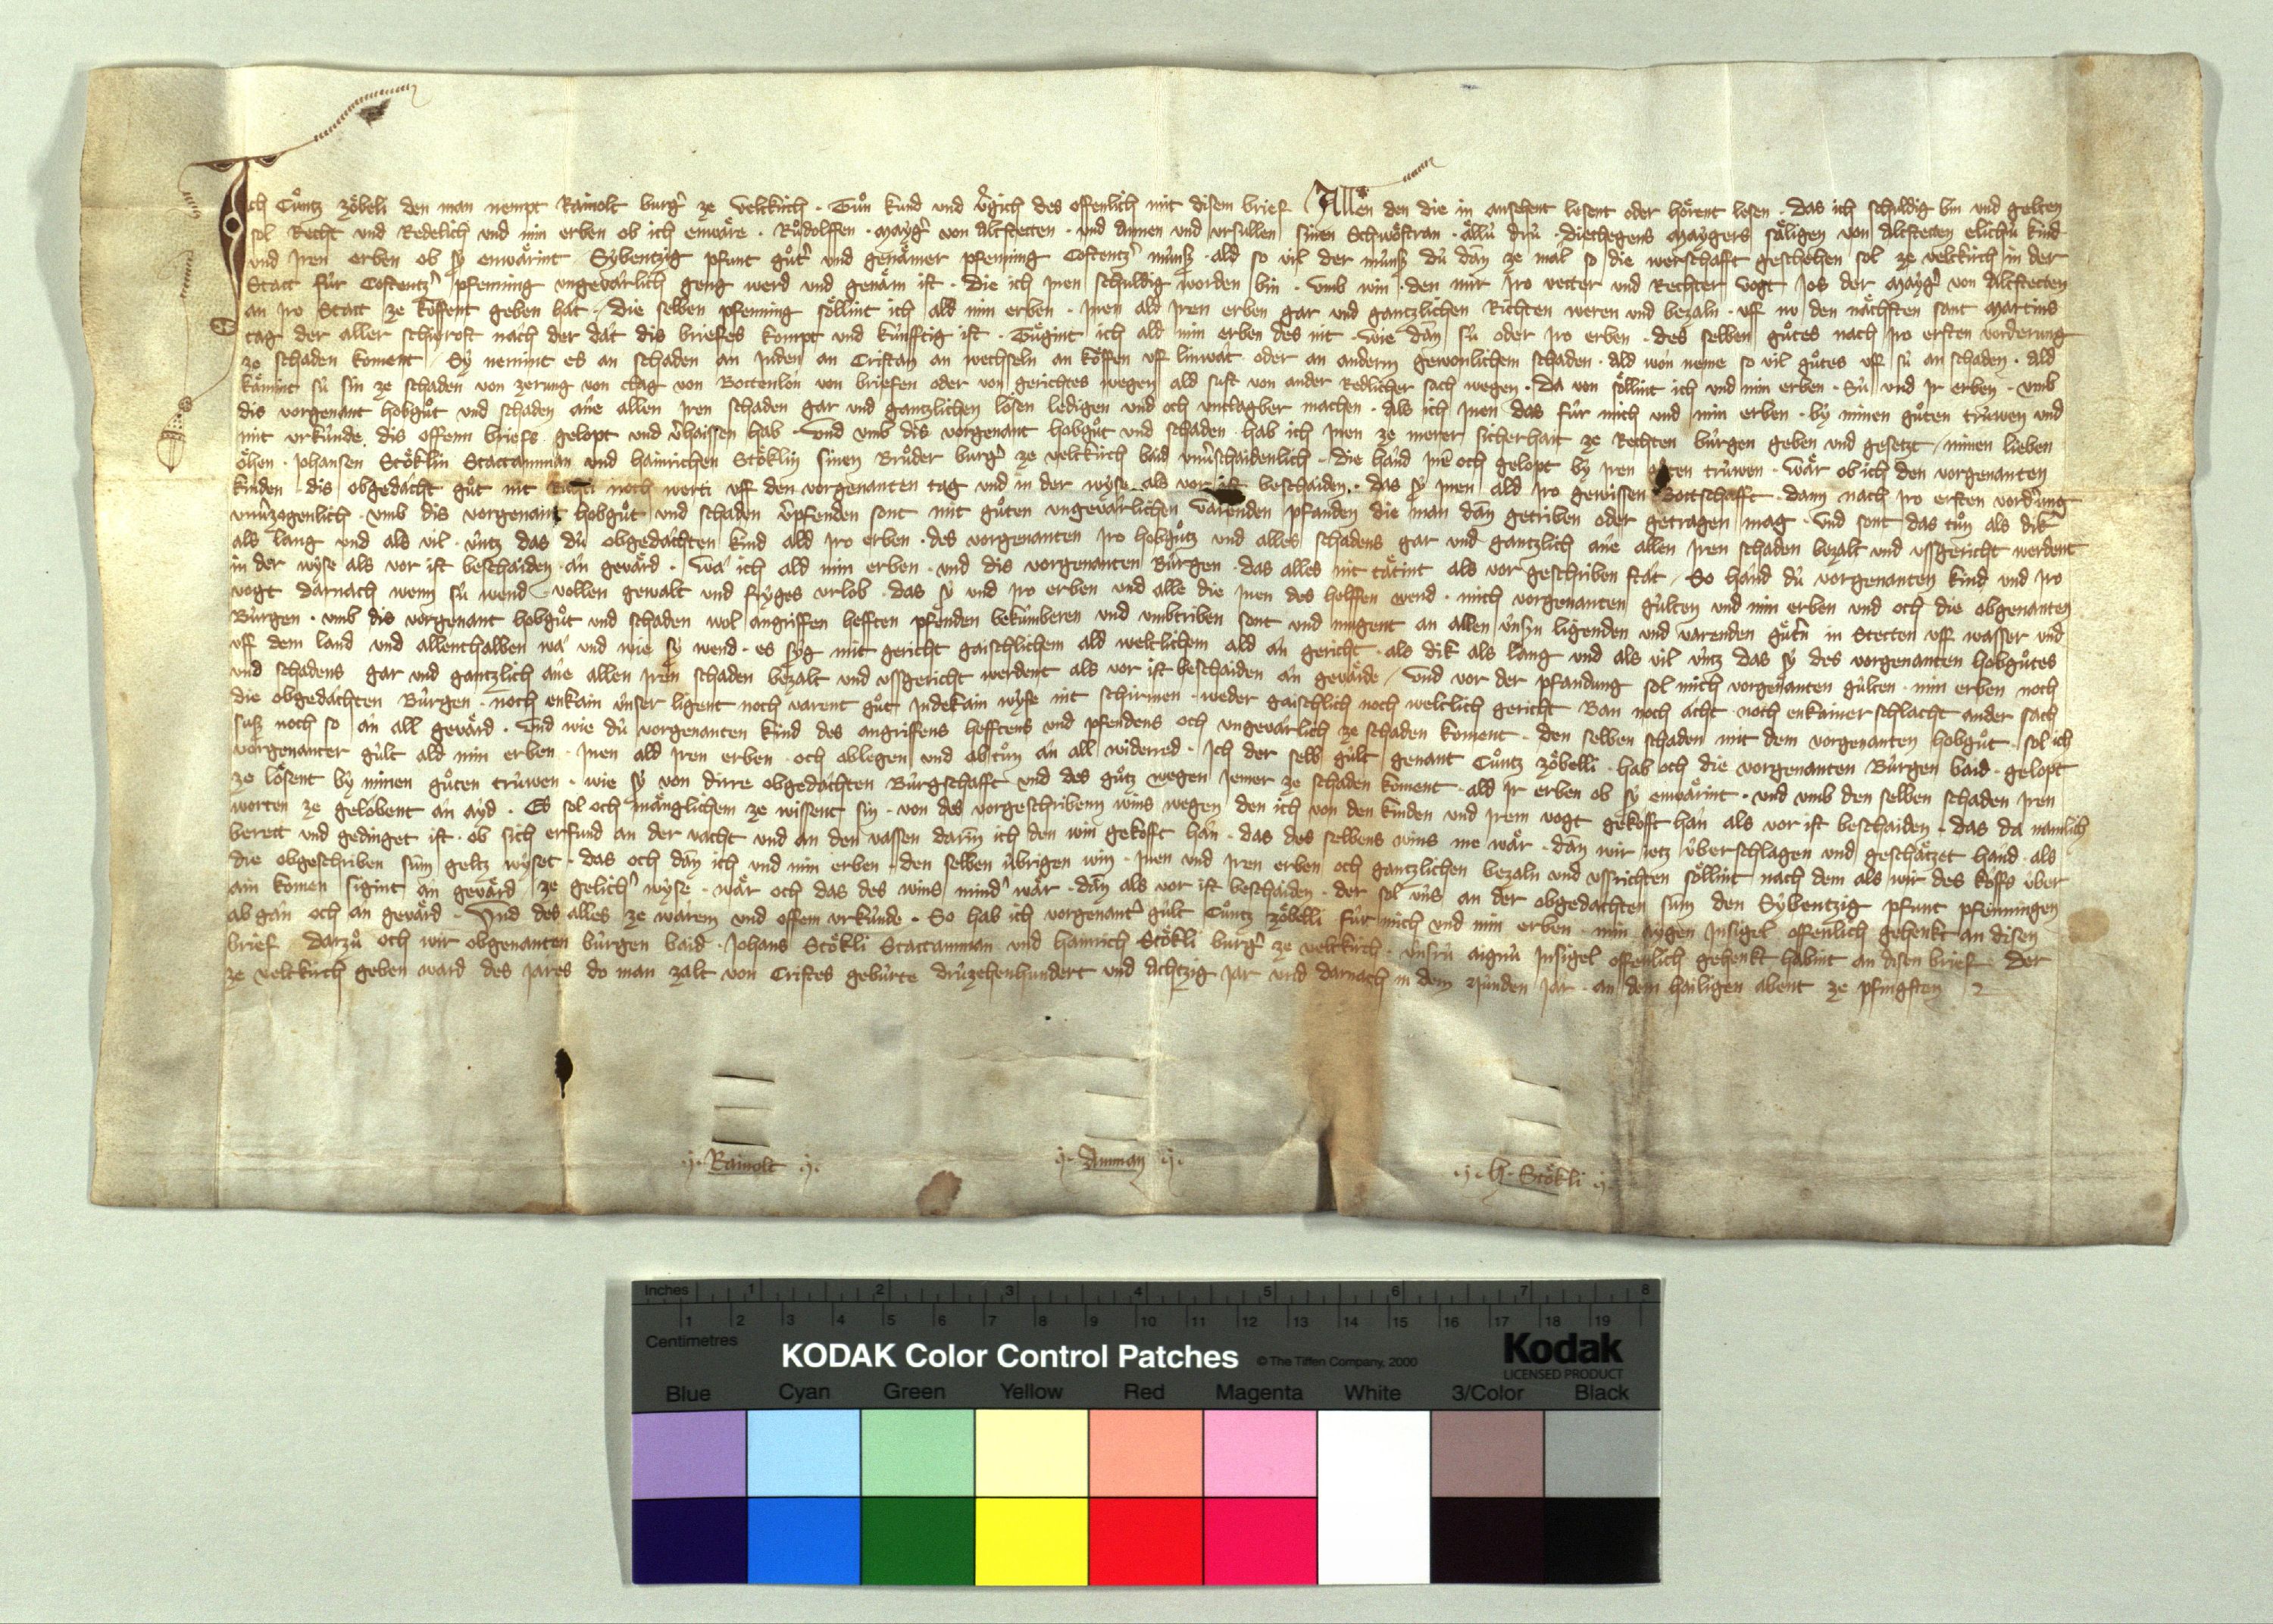 Ich Cůntz zöbeli den man nempt Rainolt burg̓ ze veltkirch · Tůn kund und v̓gich des offenlich mit disem brief Allen den die in ansehent lesent oder hörent lesen · das ich schuldig bin und gelten
sol Recht und Redelich und min erben ob ich enwäre · Růdolffen · Mayg̓ von Altstetten · und Annen und vrsullen sinen Schwöstran · ällü drü · diethegens Maygers säligen von Altstetten elichü kind
und Jren erben ob sy enwärint Sybentzig pfunt gůt̓ und genämer pfenning Costentz̓ münß · ald so vil der münß dü dañ ze mal so die werschafft geschehen sol ze veltkirch in der
Statt für Costentz̓ pfenning ungevarlich geng werd und genäm ist · die ich Jnen schuldig worden bin · vmb win · den mir Jro vetter und Rechter vogt Jos der Mayg̓ von Altstetten
an Jro Statt ze köffent geben hat · die selben pfenning söllint ich ald min erben · Jnen ald Jren erben gar und gantzlichen Richten weren und bezaln · vff nu den nächsten sant Martins
tag der aller schierost nach der dat dis briefes kompt und künfftig ist · Tügint ich ald min erben des nit · wie dañ sü oder Jro erben · des selben gůtes nach Jro ersten vorderung
ze schaden koment · Sy nemint es an schaden an Juden an Cristan an wechseln an köffen vff linwat oder an anderm gewonlichem schaden · ald won neme so vil gůtes vff sü an schaden · ald
kämint sü sin ze schaden von zerung von clag von Bottenlon von briefen oder von gerichtes wegen ald sust von ander Redlicher sach wegen · da von söllint ich und min erben · Sü und Jr erben · vmb
dis vorgenant hobgůt und schaden ane allen Jren schaden gar und gantzlichen lösen ledigen und och unclagber machen · als ich Jnen das für mich und min erben · by minen gůten trüwen und
mit vrkünde dis offenn briefs gelopt und v̓haissen hab · Und vmb dis vorgenant hobgůt und schaden hab ich Jnen ze merer sicherhait ze Rechten bürgen geben und gesetzt · minen lieben
öhen · Johansen Stöklin Stattamman und hainrichen Stöklin sinen Brůder burg̓ ze veltkirch baid vnv̓schaidenlich · die hand Jnē och gelopt by Jren gůten trüwen · Wär ob ich den vorgenanten
kinden · dis obgedacht gůt nit Richti noch werti vff den vorgenanten tag und in der wyse als vor ist beschaiden · das sy Jnen ald Jro gewissen Bottschafft · dann nach Jro ersten vord̓ung
vnv̓zogenlich · vmb dis vorgenant hobgůt und schaden v̓pfenden sont mit gůten ungevarlichen varenden pfanden die man dañ getriben oder getragen mag · Und sont das tůn als dik
als lang und als vil · üntz das dü obgedachten kind ald Jro erben · des vorgenanten Jro hobgůtz und alles schadens gar und gantzlich ane allen Jren schaden bezalt und vssgericht werdent
in der wyse als vor ist beschaiden · an gevärd · Wa ich ald min erben · und dis vorgenanten Bürgen · das alles nit tätint als vor geschriben stat · So hand dü vorgenanten kind und Jro
vogt darnach wenn sü wend vollen gewalt und fryges vrlob · das sy und Jro erben und alle die Jnen des helffen wend · mich vorgenanten gülten und min erben und och die obgenanten
Bürgen · vmb dis vorgenant hobgůt und schaden wol angriffen hefften pfenden bekümberen und vmbtriben sont und mugent an allen ünsn ligenden und varenden gůtn in Stetten vff wasser und
vff dem land und allenthalben wa und wie sy wend · es syg mit gericht gaischlichem ald weltlichem ald an gericht · als dik als lang und als vil üntz das sy des vorgenanten hobgůtes
und schadens gar und gantzlich ane allen Jren schaden bezalt und vssgericht werdent als vor ist beschaiden an gevärde · Und vor der pfandung sol mich vorgenanten gülten · min erben noch
die obgedachten Bürgen · noch enkain ünser ligent noch varent gůt Jndekain wyse nit schirmen · weder gaischlich noch weltlich gericht Ban noch acht noch enkainer schlacht ander sach
suß noch so an all gevärd · Und wie dü vorgenanten kind des angriffens hefftens und pfendens och ungevarlich ze schaden koment · den selben schaden mit dem vorgenanten hobgůt · sol ich
vorgenanter gült ald min erben · Jnen ald Jren erben och ablegen und abtůn an all widerred · Ich der selb gült genant Cůntz zöbelli · hab och die vorgenanten Bürgen baid · gelopt
ze lösent by minen gůten trüwen · wie sy von dirre obgedachten Bürgschafft und des gůtz wegen Jemer ze schaden koment · ald Jr erben ob sy enwärint · und vmb den selben schaden Jren
worten ze gelobent an ayd · Es sol och mänglichem ze wissent sin · von des vorgeschribenn wins wegen den ich von den kinden und Jrem vogt gekofft han als vor ist beschaiden · das da namlich
berett und gedinget ist · ob sich erfund an der vacht und an den vassen darin ich den win gekofft han · das des selbens wins me wär · dañ wir ietz überschlagen und geschätzet hand · als
die obgeschriben sum geltz wyset · das och dañ ich und min erben · den selben übrigen win · Jnen und Jren erben och gantzlichen bezaln und vssrichten söllint nach dem als wir des köffs über
ain komen sigint an gevärd · ze gelich̓ wyse · wär och das des wins mind̓ wär · dañ als vor ist beschaiden · der sol üns an der obgedachten sum den Sybentzig pfunt pfenningen
ab gan och an gevärd · Und des alles ze warem und offem vrkünde · So hab ich vorgenant̓ gült Cůntz zöbelli für mich und min erben · min aygen Jnsigel offenlich gehenkt an disen
brief darzů och wir obgenanten bürgen baid · Johans Stökli Stattamman und hainrich Stökli burg̓ ze veltkirch · ünsrü aignü Jnsigel offenlich gehenkt habint an disen brief · Der
ze veltkirch geben ward des Jares do man zalt von Cristes gebürte drüzehenhundert und Achtzig Jar und darnach in dem Nünden Jar · an dem hailigen abent ze pfingsten
Rainolt Amman H · Stökli
Inches 1 2 3 4 5 6 7 8
Centimetres 1 2 3 4 5 6 7 8 9 10 11 12 13 14 15 16 17 18 19
KODAK Color Control Patches © The Tiffen Company, 2000 Kodak
LICENSED PRODUCT
Blue Cyan Green Yellow Red Magenta White 3/Color Black